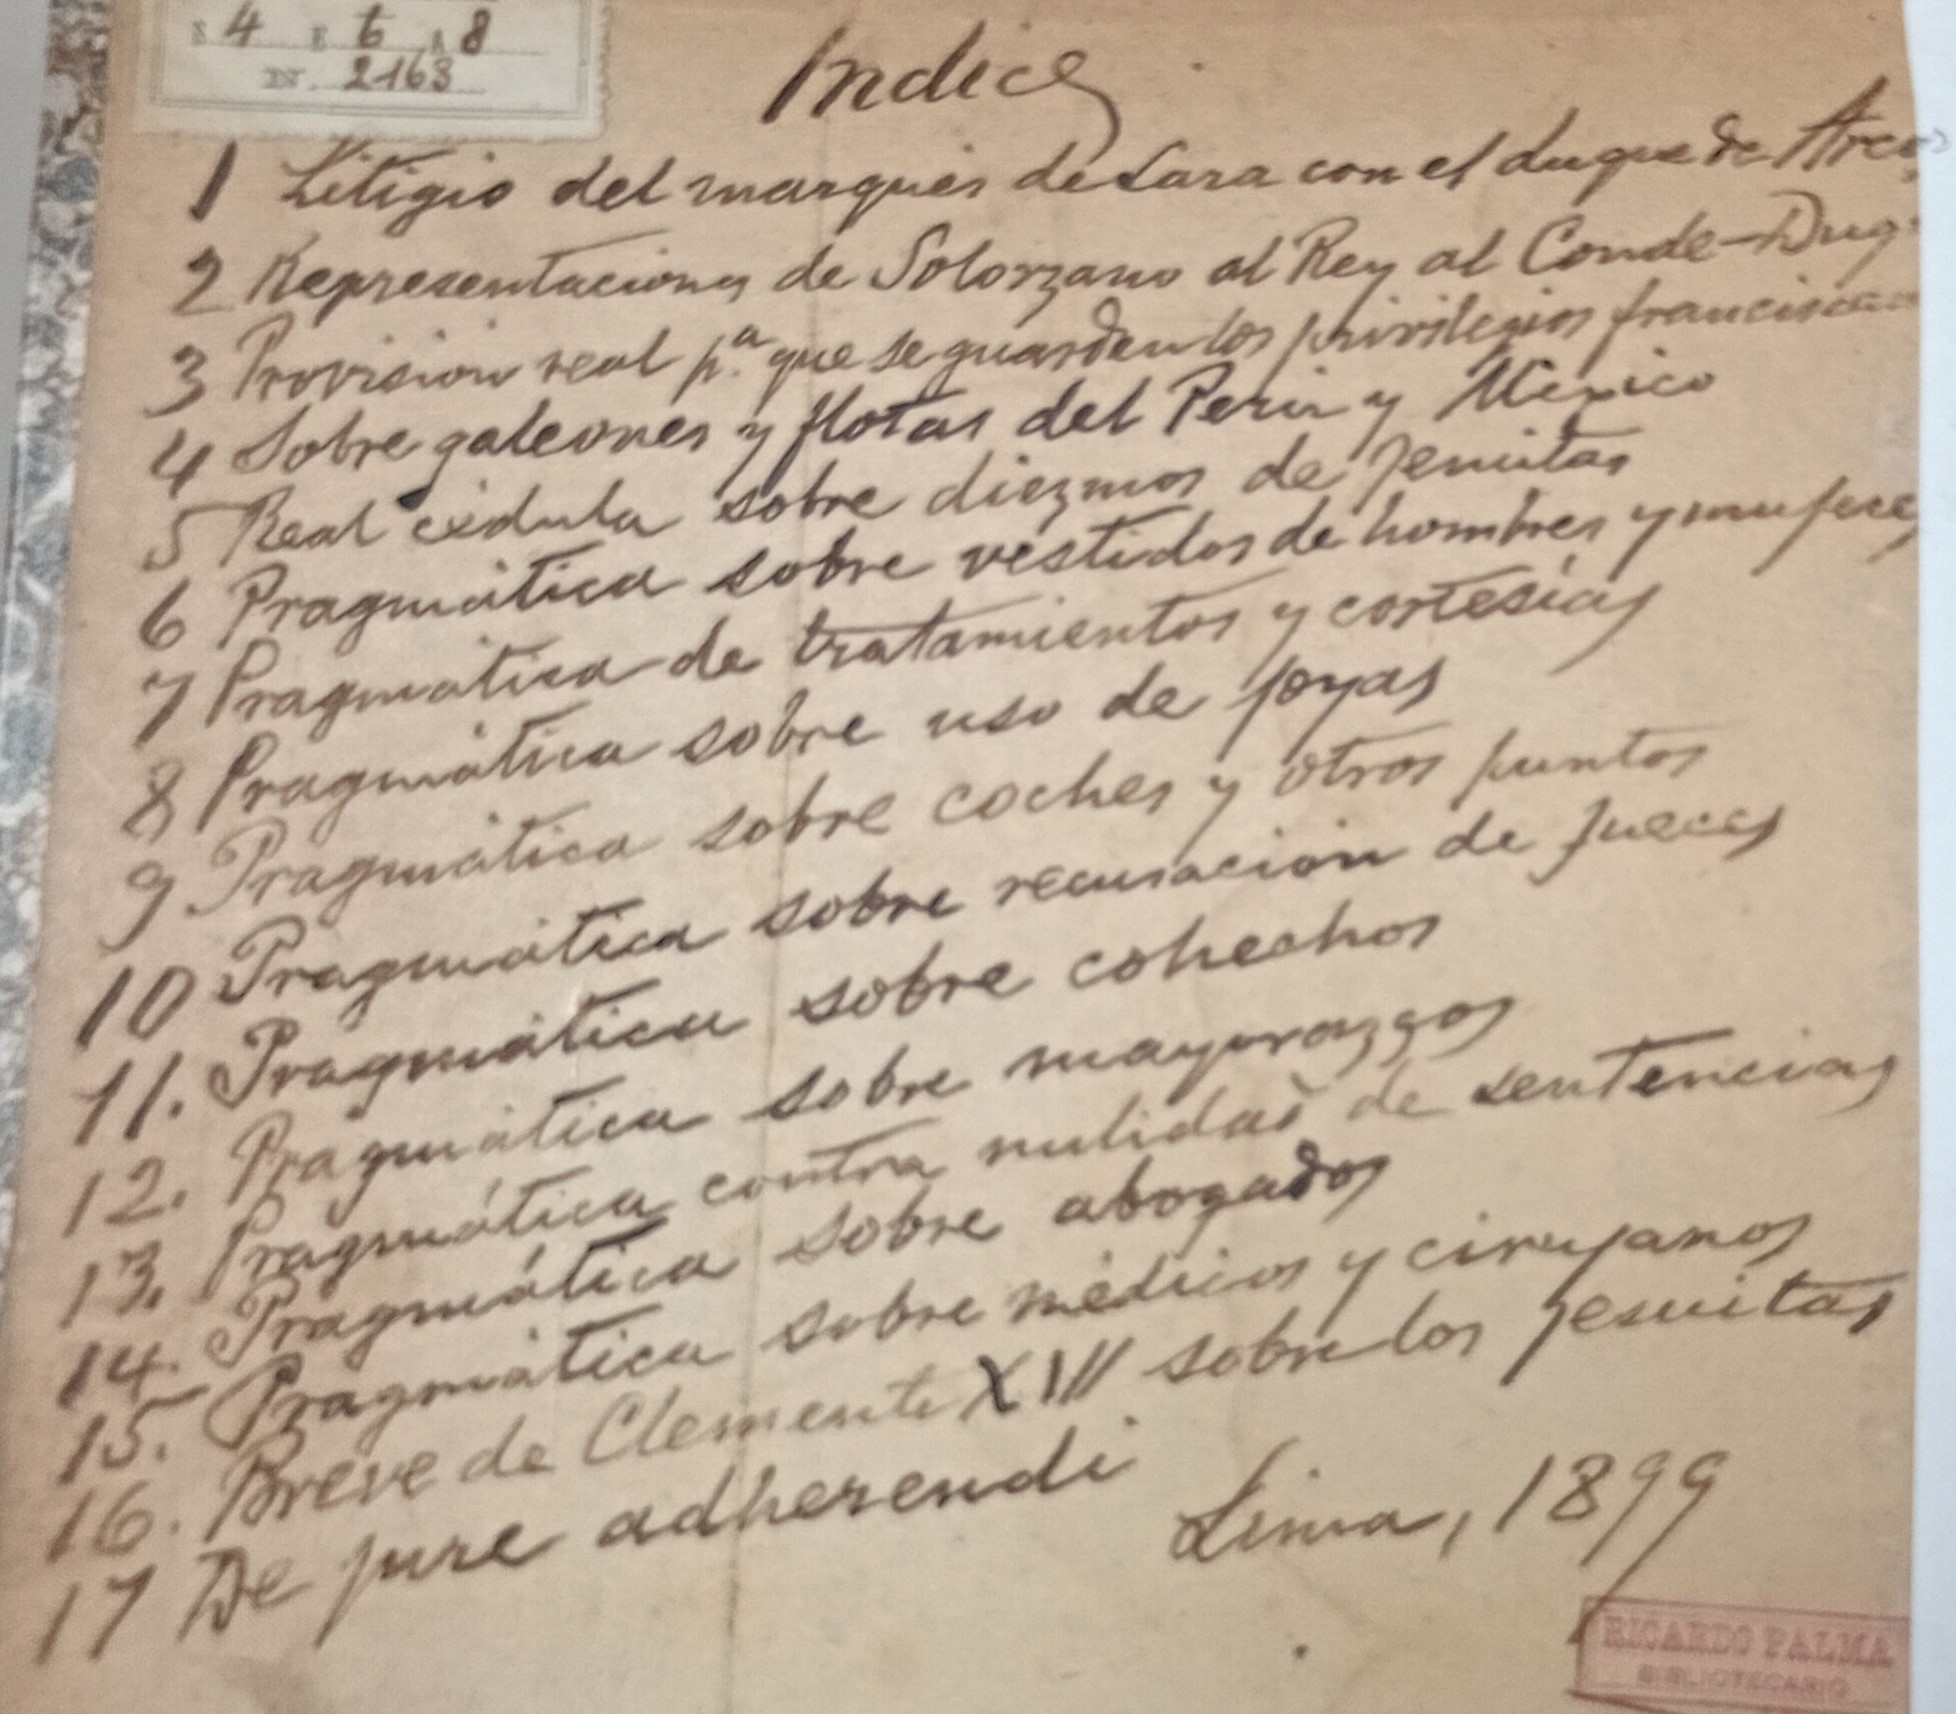 S 4 E 6 A 8
N. 2163
Indice
1 Litigio del marqués de Lara con el duque de Arcos
2 Representaciones de Solorzano al Rey al Conde-Duq
3 Provision real p.ª que se guarden los privilegios franciscan
4 Sobre galeones y flotas del Perú y México
5 Real cédula sobre diezmos de jesuitas
6 Pragmática sobre vestidos de hombres y mujeres
7 Pragmática de tratamientos y cortesías
8 Pragmática sobre uso de joyas
9 Pragmática sobre coches y otros puntos
10 Pragmática sobre recusación de jueces
11. Pragmática sobre cohechos
12. Pragmática sobre mayorazgos
13. Pragmática contra nulidad de sentencias
14. Pragmática sobre abogados
15. Pragmática sobre médicos y cirujanos
16. Breve de Clemente XIII sobre los jesuitas
17 De jure adherendi
Lima, 1899
RICARDO PALMA
BIBLIOTECARIO